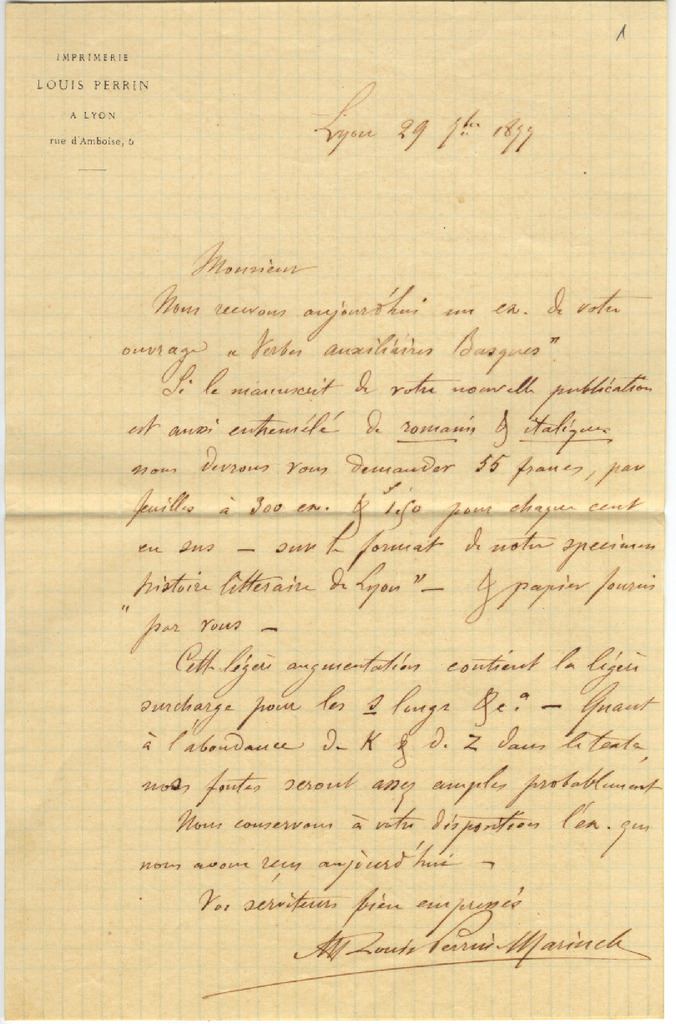 1
IMPRIMERIE
LOUIS PERRIN
A LYON
rue d'Amboise, 6
Lyon 29 9bre 1877
Monsieur
Nous recevons aujourd'hui un ex. de votre
ouvrage « Verbes auxiliaires Basques"
Si le manuscrit de votre nouvelle publication
est aussi entremêlé de romains & italiques
nous devrons vous demander 55 francs, par
feuilles à 300 ex. & pour chaque cent
en sus — sur le format de notre specimen
histoire litteraire de Lyon" — & papier fourni
" par vous —
Cette légère augmentation contient la légère
surcharge pour les s longs &c.a — Quant
à l'abondance de K & de Z dans le texte,
nos fontes seront assez amples probablement
Nous conservons à votre disposition l'ex. que
nous avons reçu aujourd'hui —
Vos serviteurs bien empressés
Louis Perrin & Marinet